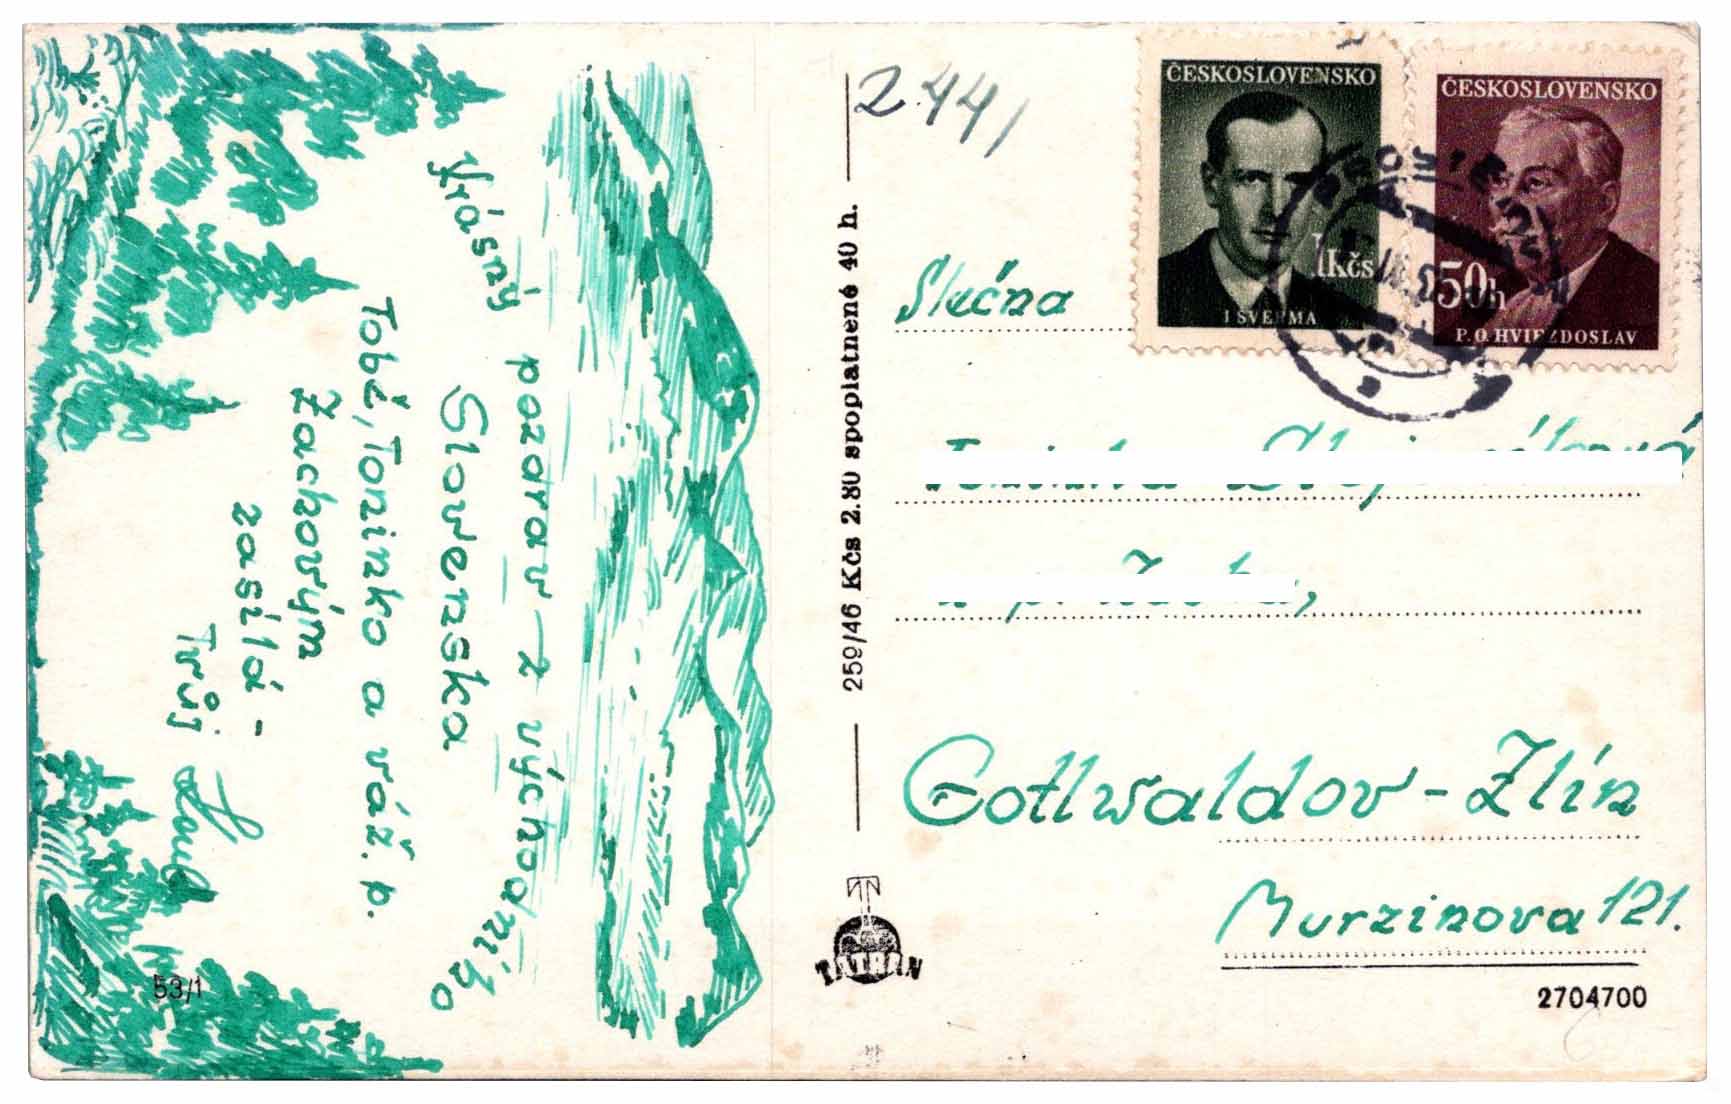 Krásný
pozdrav z východního
Slovenska
Tobě, Toninko a váž. p.
Zachovým
zasílá -
Tvůj
53/1
259/46 Kčs 2.80 spoplatnené 40 h.
TATRAN
2441
ČESKOSLOVENSKO
1Kčs
J. ŠVERMA
ČESKOSLOVENSKO
50h
P. O. HVIEZDOSLAV
Slečna
Gottwaldov - Zlín
Murzinova 121.
2704700